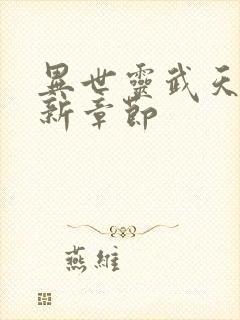 異世靈武天
新章節
燕維